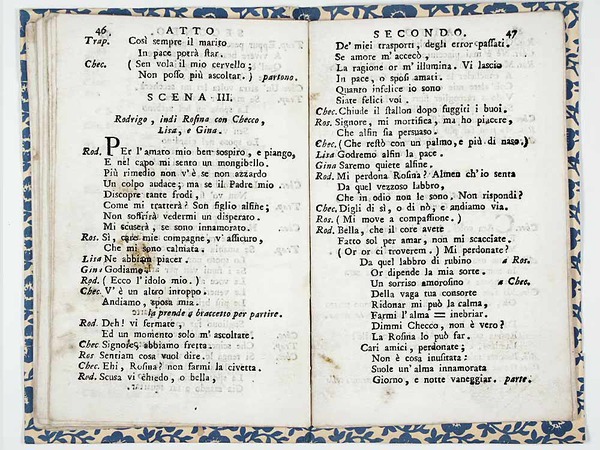 46 ATTO
Trap. Così sempre il marito
In pace potrà star.
Chec. ( Sen vola il mio cervello;
Non posso più ascoltar. ) partono.
SCENA III.
Rodrigo, indi Rosina con Checco,
Lisa, e Gina.
Rod. PEr l'amato mio ben sospiro, e piango,
E nel capo mi sento un mongibello.
Più rimedio non v'è se non azzardo
Un colpo audace; ma se il Padre mio
Discopre tante frodi,
Come mi tratterà? Son figlio alfine;
Non soffrirà vedermi un disperato.
Mi scuserà, se sono innamorato.
Ros. Sì, care mie compagne, v' assicuro,
Che mi sono calmata.
Lisa Ne abbiam piacer.
Gina Godiamo.
Rod. ( Ecco l'idolo mio. )
Chec. V' è un altro intoppo.
Andiamo, sposa mia.
la prende a braccetto per partire.
Rod. Deh! vi fermate,
Ed un momento solo m' ascoltate.
Chec. Signore, abbiamo fretta.
Ros Sentiam cosa vuol dire.
Chec. Ehi, Rosina? non farmi la civetta.
Rod. Scusa vi chiedo, o bella,
SECONDO. 47
De' miei trasporti, degli error passati.
Se amore m' accecò,
La ragione or m' illumina. Vi lascio
In pace, o sposi amati.
Quanto infelice io sono
Siate felici voi.
Chec. Chiude il stallon dopo fuggiti i buoi.
Ros. Signore, mi mortifica, ma ho piacere,
Che alfin sia persuaso.
Chec. ( Che restò con un palmo, e più di naso. )
Lisa Godremo alfin la pace.
Gina Saremo quiete alfine.
Rod. Mi perdona Rosina? Almen ch'io senta
Da quel vezzoso labbro,
Che in odio non le sono. Non rispondi?
Chec. Digli di sì, o di nò, e andiamo via.
Ros. ( Mi move a compassione. )
Rod. Bella, che il core avete
Fatto sol per amar, non mi scacciate.
( Or or ci troverem. ) Mi perdonate?
Da quel labbro di rubino a Ros.
Or dipende la mia sorte.
Un sorriso amorosino a Chec.
Della vaga tua consorte
Ridonar mi può la calma,
Farmi l'alma = inebriar.
Dimmi Checco, non è vero?
La Rosina lo può far.
Cari amici, perdonate;
Non è cosa inusitata:
Suole un' alma innamorata
Giorno, e notte vaneggiar. parte.